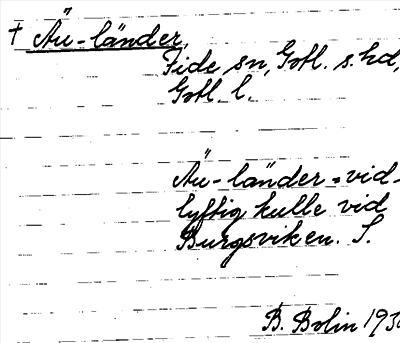 † Äu-länder,
Fide sn, Gotl. s. hd,
Gotl. l.
Äu-länder = vid-
lyftig kulle vid
Burgsviken. S.
B. Bolin 193